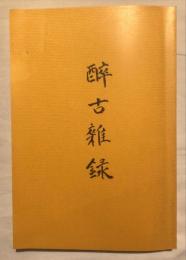 醉古雜録